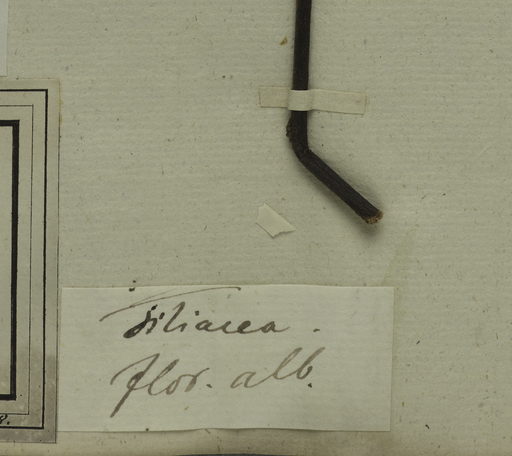 Tiliacea.
flor. alb.
8.